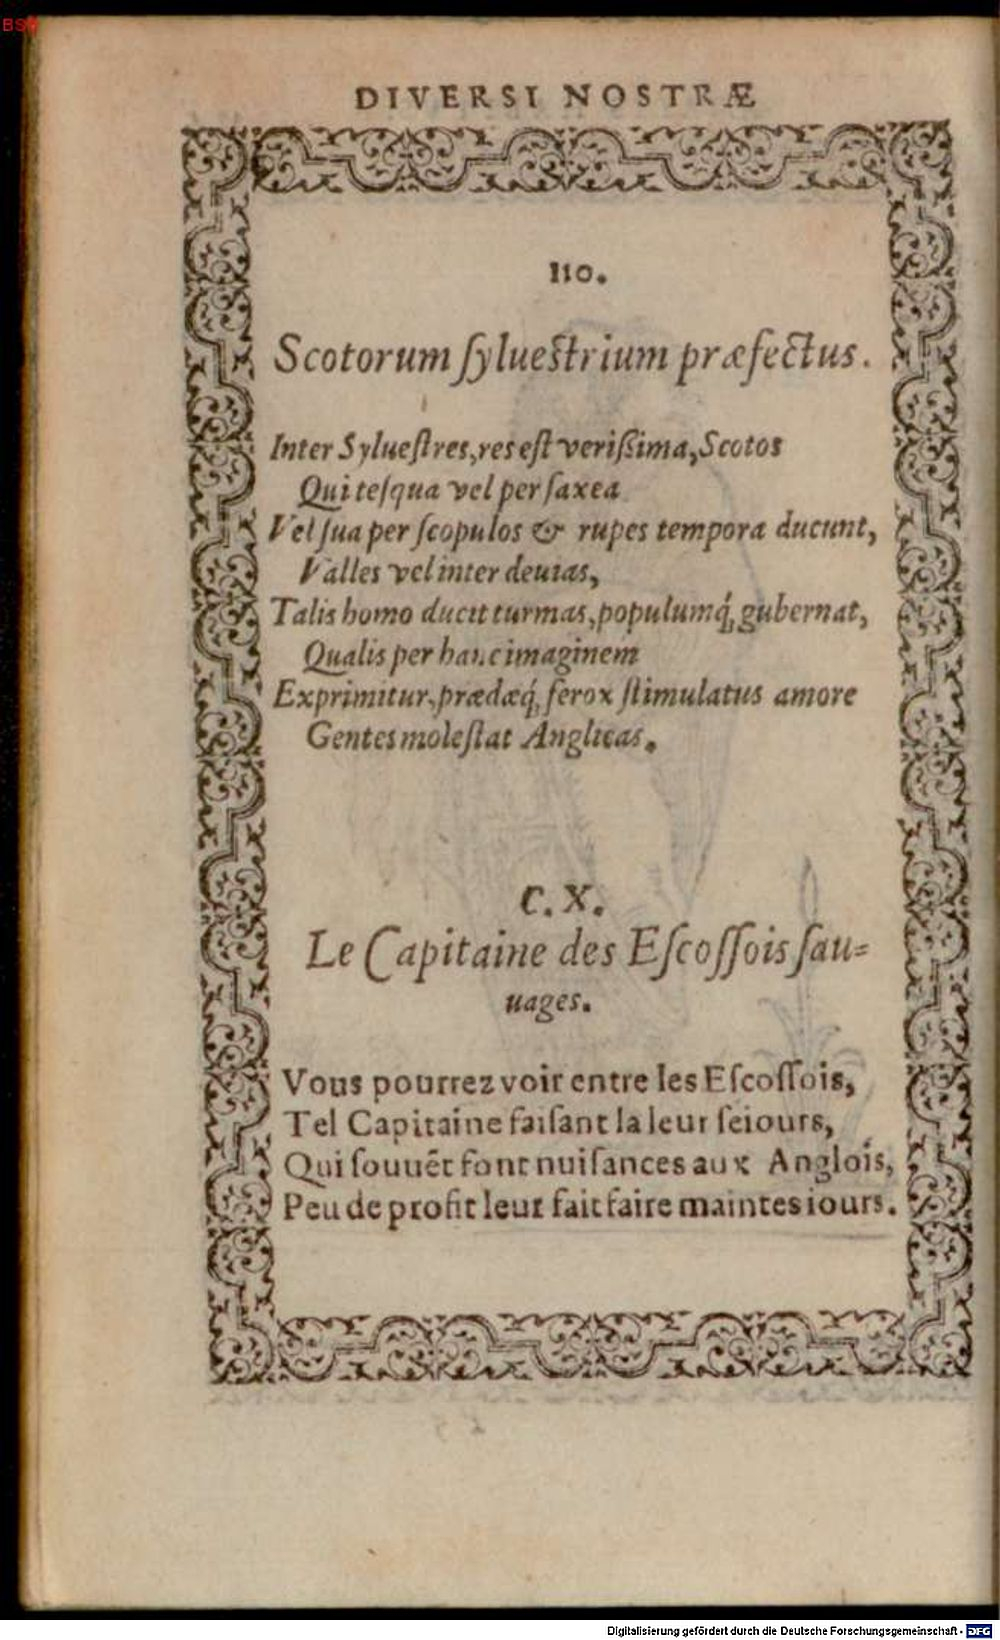 BSB
DIVERSI NOSTRÆ
110.
Scotorum ſylueſtrium præfectus.
Inter Sylueſtres, res eſt verißima, Scotos
Qui teſqua vel per ſaxea
Vel ſua per ſcopulos & rupes tempora ducunt,
Valles vel inter deuias,
Talis homo ducit turmas, populumq́; gubernat,
Qualis per hanc imaginem
Exprimitur, prædæq́; ferox ſtimulatus amore
Gentes moleſtat Anglicas.
C. X.
Le Capitaine des Eſcoſſois ſau-
uages.
Vous pourrez voir entre les Eſcoſſois,
Tel Capitaine faiſant la leur ſeiours,
Qui ſouuēt font nuiſances aux Anglois,
Peu de profit leur fait faire maintes iours.
Digitalisierung gefördert durch die Deutsche Forschungsgemeinschaft - DFG